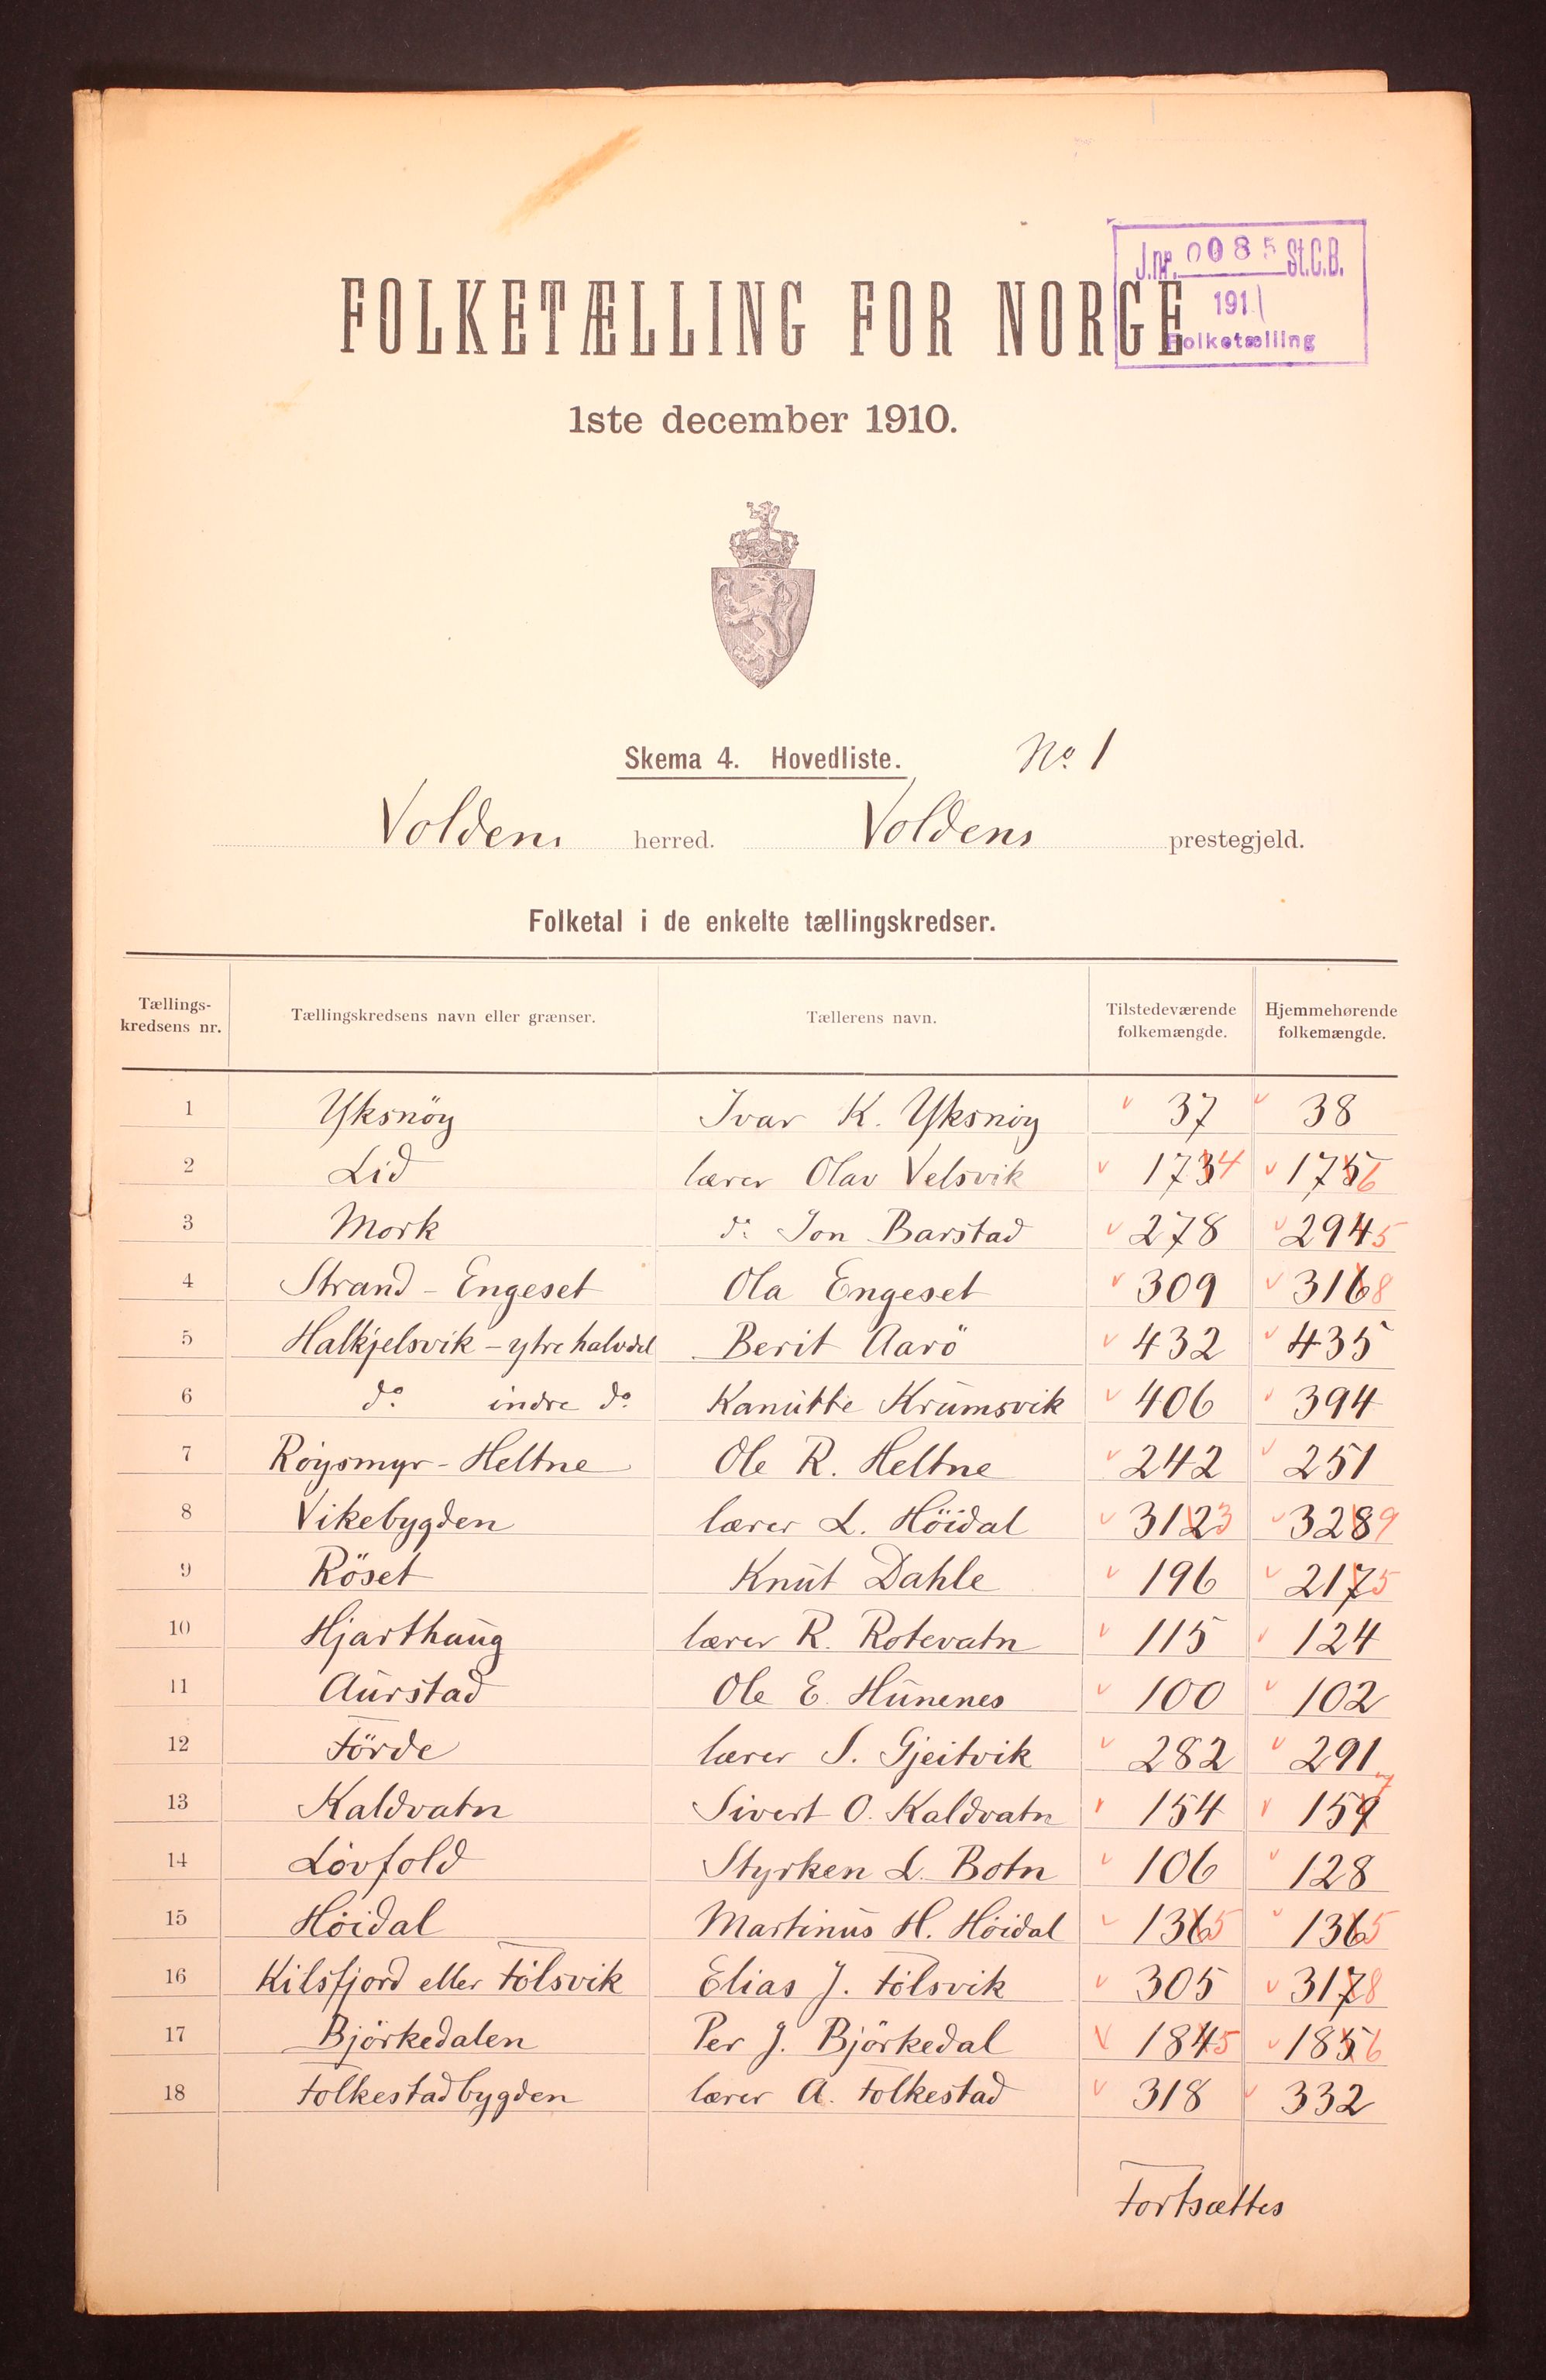 J.nr. 0085 St.C.B.
1911
Folketælling
FOLKETÆLLING FOR NORGE
1ste december 1910.
Skema 4. Hovedliste. No. 1
Voldens herred. Voldens prestegjeld.
Folketal i de enkelte tællingskredser.
Tællings-kredsens nr. Tællingskredsens navn eller grænser. Tællerens navn. Tilstedeværende folkemængde. Hjemmehørende folkemængde.
1 Yksnöy Ivar K. Yksnöy v 37 v 38
2 Lid lærer Olav Velsvik v 1734 v 1756
3 Mork do. Jon Barstad v 278 v 2945
4 Strand - Engeset Ola Engeset v 309 v 3168
5 Halkjelsvik - ytre halvdel Berit Aarö v 432 v 435
6 do. indre do. Kanutte Krumsvik v 406 v 394
7 Röysmyr - Heltne Ole R. Heltne v 242 v 251
8 Vikebygden lærer L. Höidal v 3123 v 3289
9 Röset Knut Dahle v 196 v 2175
10 Hjarthaug lærer R. Rotevatn v 115 v 124
11 Aurstad Ole E. Hunenes v 100 v 102
12 Förde lærer S. Gjeitvik v 282 v 291
13 Kaldvatn Sivert O. Kaldvatn v 154 v 159
14 Lövfold Styrken L. Botn v 106 v 128
15 Höidal Martinus H. Höidal v 1365 v 1365
16 Kilsfjord eller Fölsvik Elias J. Fölsvik v 305 v 3178
17 Björkedalen Per J. Björkedal v 1845 v 1856
18 Folkestadbygden lærer A. Folkestad v 318 v 332
Fortsættes